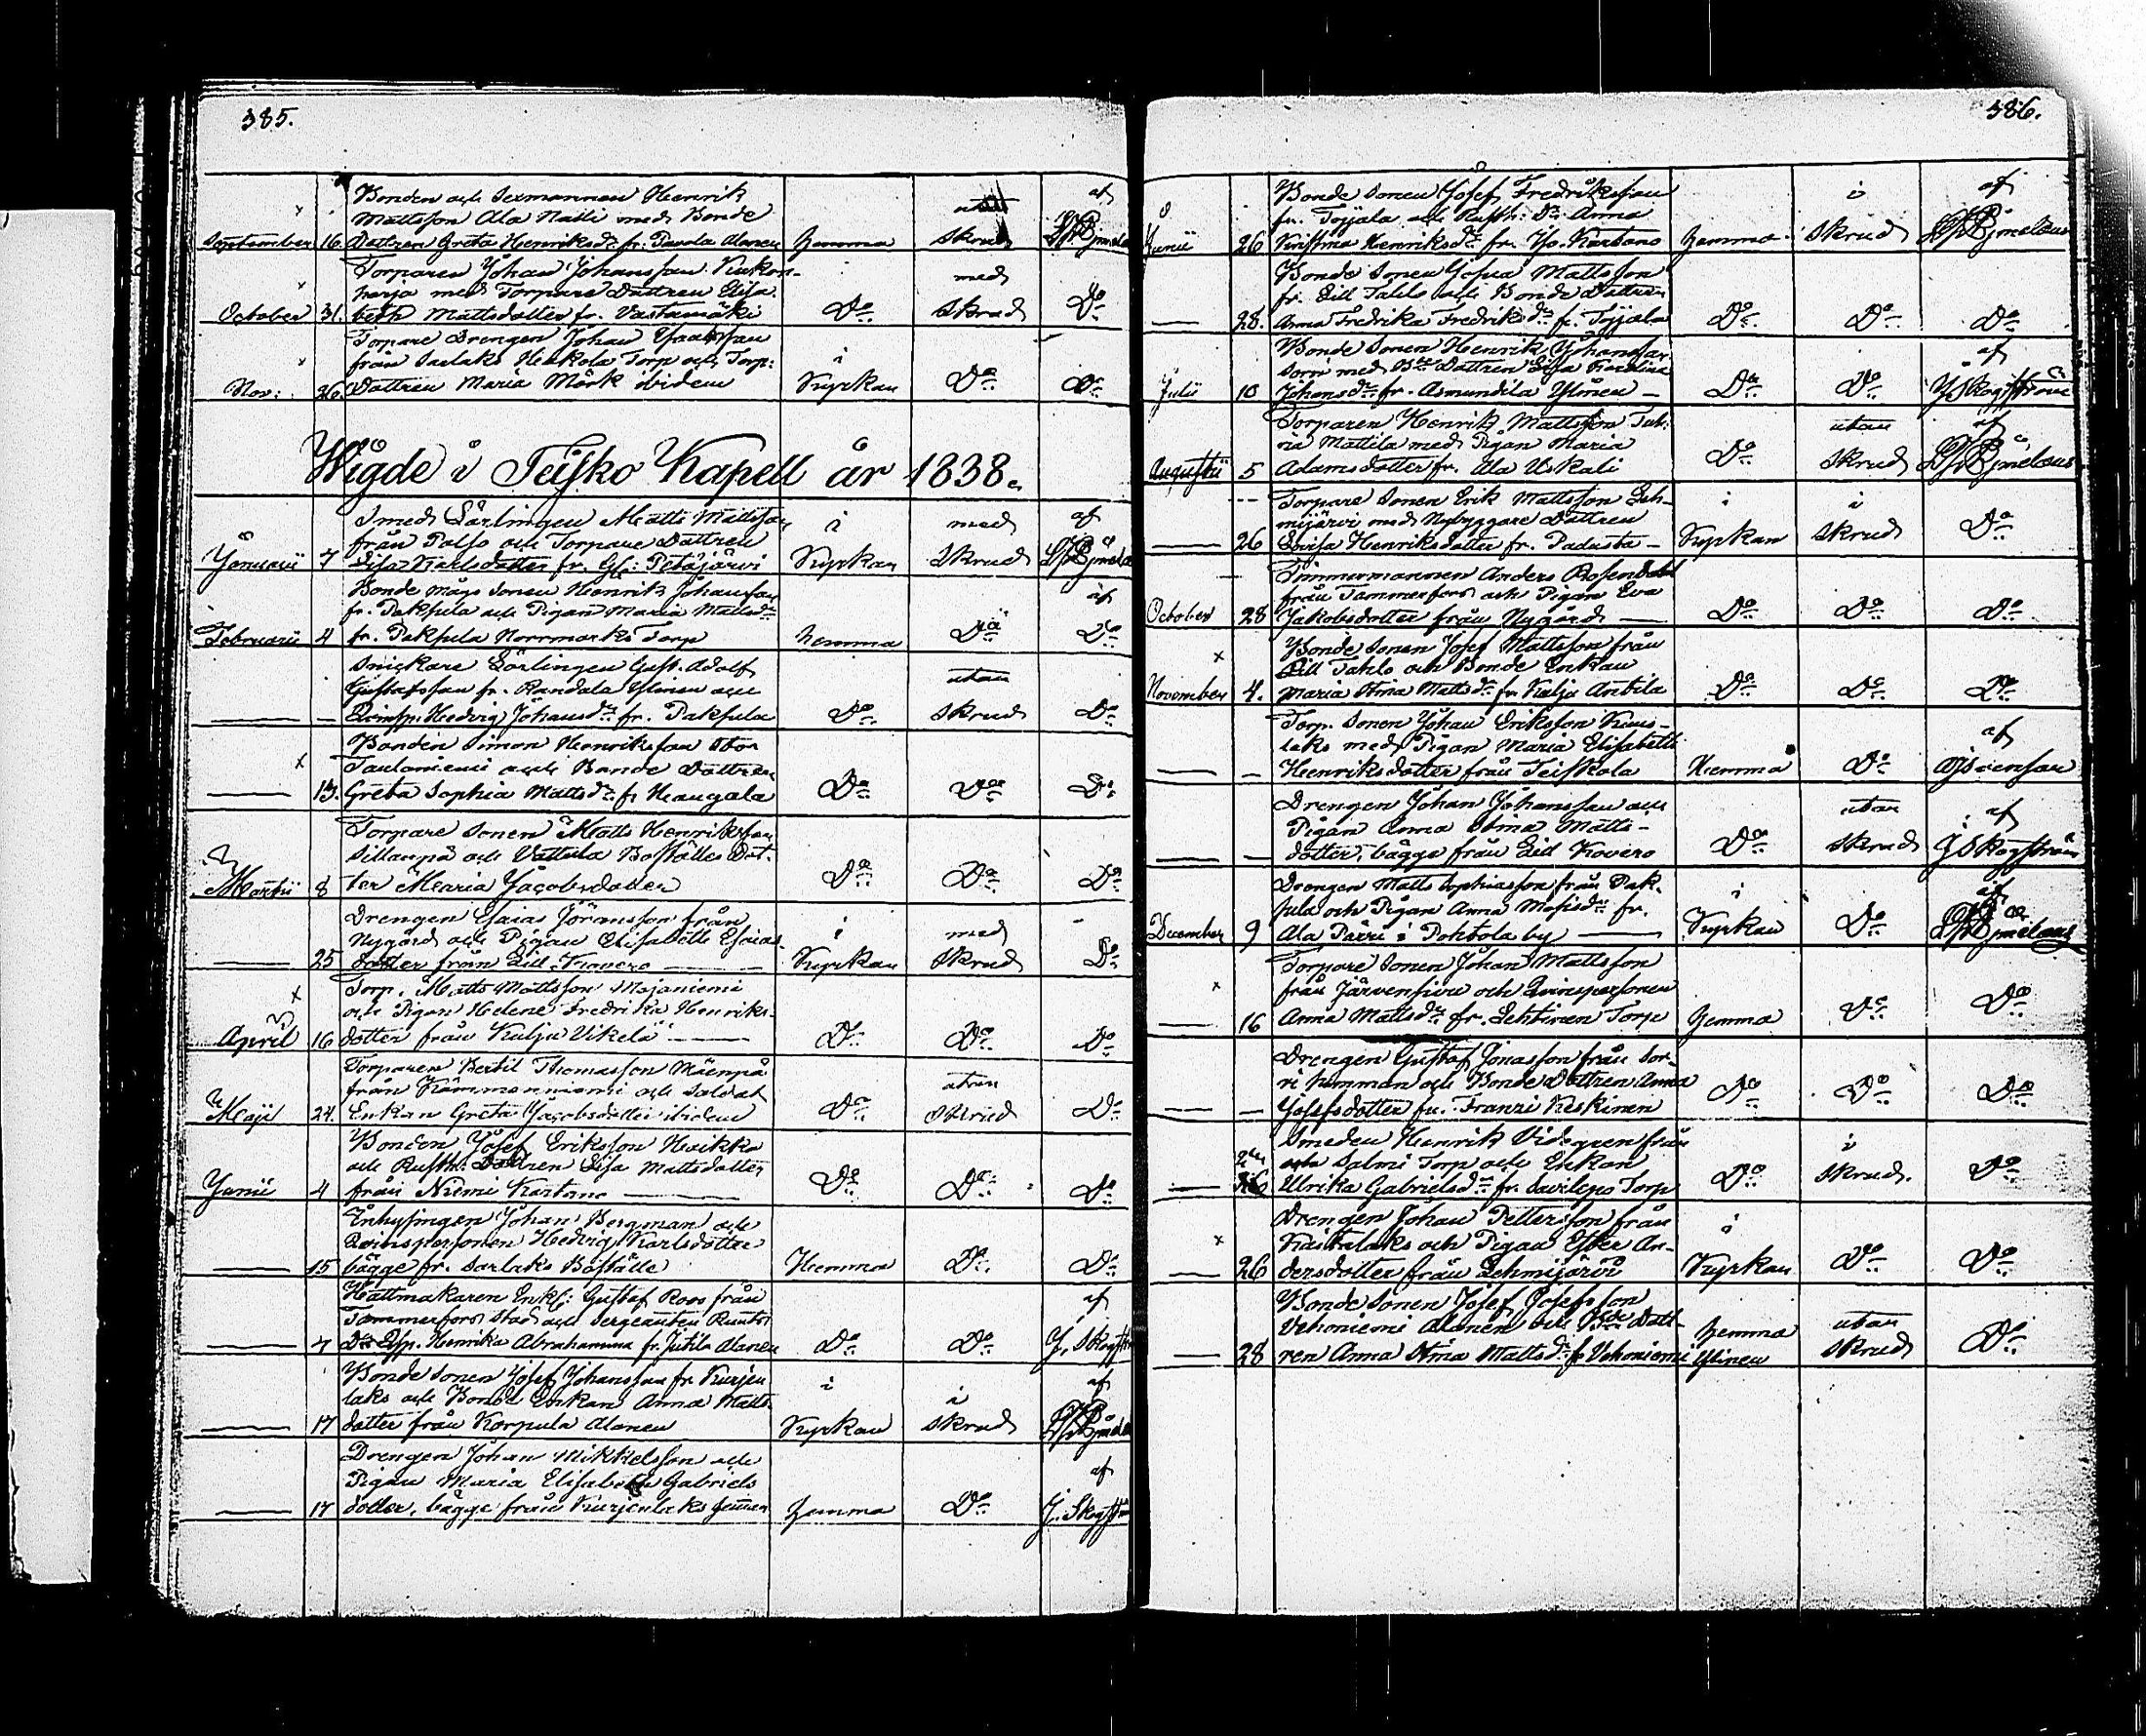 385.
Bonden och Sexmannen Henrik
Mattsson Ala Nasli med Bonde
September 16. Dottren Greta Henriksdr fr. Pavola Alanen hemma utan skrud af
Torparen Johan Johansson Kukon-
harja med Torpare Dottren Elisa-
October 31. beth Mattsdotter fr. Vastamäki Do med Skrud Do
Torpare Drengen Johan
från Sarlaks Heikola Torp och Torp:
Nov: 26. Dottren Maria Mörk ibidem i Kyrkan Do Do
Wigde i Teisko Kapell år 1838.
Smeds Lärlingen Matts Mattsson
från Polso och Torpare Dottren
Januarii 7 Lisa Karlsdotter fr. Petäjärvi i Kyrkan med Skrud af
Bonde mågs Sonen Henrik Johansson
fr. Pakkula och Pigan Maria Mattsdr
Februarii 4 fr. Pakkula Norrmarks Torp hemma Do af Do
Snickare Lärlingen Gust. Adolf
Gustafsson fr. Randala Ylinen och
— — Qvinsp. Hedvig Johansdr fr. Pakkula Do utan skrud Do
Bonden Simon Henriksson Stor
Taulaniemi och Bonde Dottren
— 13. Greta Sophia Mattsdr fr Haugala Do Do Do
Torpare Sonen Matts Henriksson
Sillanpä och Vattula Boställes Dot-
Martii 8 ter Maria Jacobsdotter Do Do Do
Drengen Esaias Jöransson från
Nygård och Pigan Elisabeth Esaias
— 25 dotter från Lill Kovero — i Kyrkan med Skrud Do
Torp. Matts Mattsson Majaniemi
och Pigan Helena Fredrika Henriks-
April 16 dotter från Kulju Uskela — Do Do Do
Torparen Bertil Thomasson Mäenpä
från Kämmenniemi och Soldat
Maji 24. Enkan Greta Jacobsdotter ibidem Do utan Skrud Do
Bonden Josef Eriksson Heikko
och Rusth: Dottren Lisa Mattsdotter
Junii 4 från Niemi Kartano — Do Do Do
Inhysingen Johan Bergman och
Qvinspersonen Hedvig Karlsdotter
— 15 bägge fr. Sarlaks Boställe Hemma Do Do
Hattmakaren Enkl: Gustaf Roos från
Tammerfors Stad och Sergeanten
— 7 Henrika Abrahamina fr. Jutila Alanen Do Do af J. Skogström
Bonde Sonen Josef Johansson fr. Kurjen
laks och Bonde Enkan Anna Matts
— 17 dotter från Korpula Alanen i Kyrkan i skrud af
Drengen Johan Mikkelsson och
Pigan Maria Elisabeth Gabriels
— 17 dotter, bägge från Kurjenlaks hemman hemma Do af J. Skogström
386.
Bonde Sonen Josef Fredriksson
fr. Terjäla och Rusth: Dr Anna
Junii 26 Kristina Henriksdr fr. Kartano hemma i skrud af
Bonde Sonen Josua Mattsson
fr. Lill Tahlo och Bonde Dottren
— 28. Anna Fredrika Fredriksdr fr. Terjäla Do Do Do
Bonde Sonen Henrik Johansson
Sorvi med Bde Dottren Lisa Karolina
Julii 10 Johansdr fr. Asmundila Ylinen — Do Do af J. Skogström
Torparen Henrik Mattsson
Mattila med Pigan Maria
Augustii 5 Adamsdotter fr. Ala Uskali Do utan skrud af
Torpare Sonen Erik Mattsson Leh-
mijärvi med Nybyggare Dottren
— 26 Lovisa Henriksdotter fr. Padusta — i Kyrkan i skrud Do
Timmermannen Anders Rosendahl
från Tammerfors och Pigan Eva
October 28 Jakobsdotter från Nygård — Do Do Do
Bonde Sonen Josef Mattsson från
Lill Tahlo och Bonde Enkan
November 4. Maria Stina Mattsdr fr. Kulju Antila Do Do Do
Torp. Sonen Johan Eriksson Kuus-
laks med Pigan Maria Elisabeth
— — Henriksdotter från Teiskola Hemma Do af
Drengen Johan Johansson och
Pigan Anna Stina Matts-
— — dotter, bägge från Lill Kovero Do utan skrud af J Skogström
Drengen Matts Sophiasson från Pak-
kula och Pigan Anna Mosisdr fr.
December 9 Ala Pärri i Pohtola by — i Kyrkan Do af
Torpare Sonen Johan Mattsson
från Järvensivu och Qvinspersonen
— 16 Anna Mattsdr fr. Lehtinen Torp hemma Do Do
Drengen Gustaf Jonasson från Sor-
ri hemman och Bonde Dottren Anna
— — Josefsdotter fr. Franzi Keskinen Do Do Do
Smeden Henrik Videgren från
Salmi Torp och Enkan
— 26 Ulrika Gabrielsdr fr. Savilepo Torp Do i skrud. Do
Drengen Johan Pettersson från
Kaitalaks och Pigan Ester An-
— 26 dersdotter från Lehmijärvi i Kyrkan Do Do
Bonde Sonen Josef Josefsson
Vehoniemi Alanen och Bde Dott-
— 28 ren Anna Stina Mattsdr fr Vehoniemi Ylinen hemma utan skrud Do